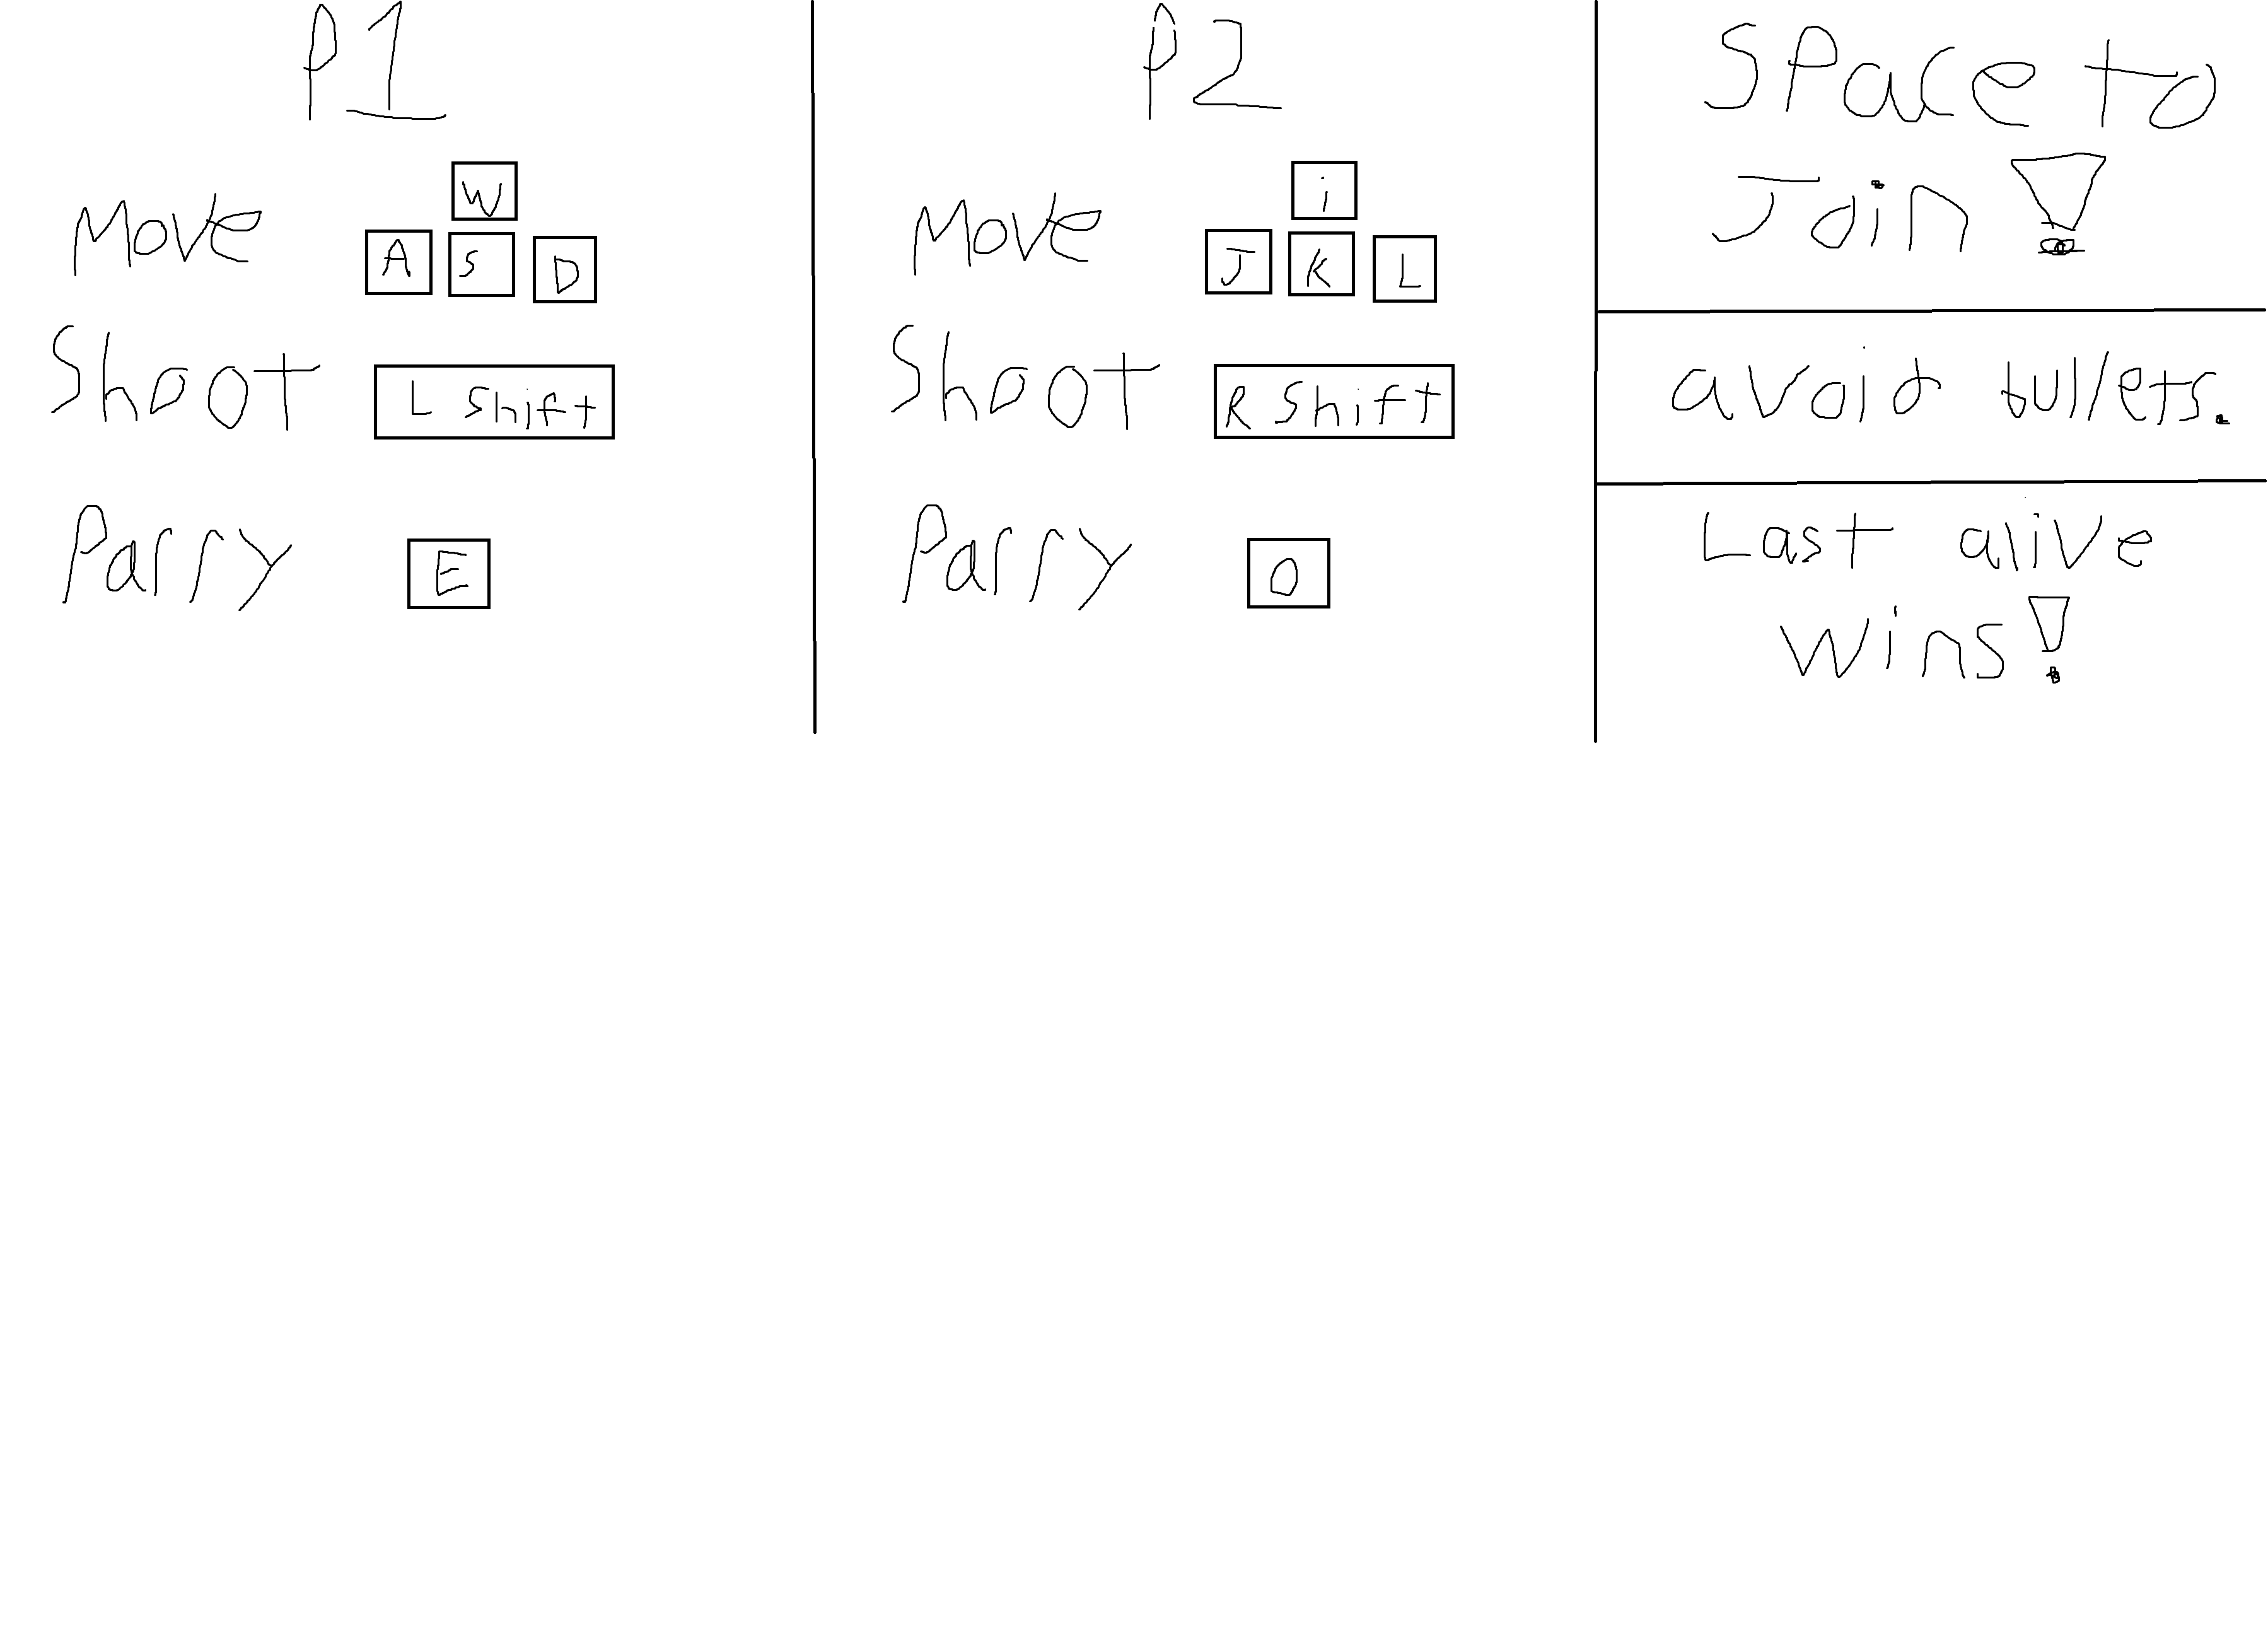 P1
W
Move A S D
Shoot L Shift
Parry E
P2
i
Move J K L
Shoot R Shift
Parry O
Space to
Join!
avoid bullets.
Last alive
wins!